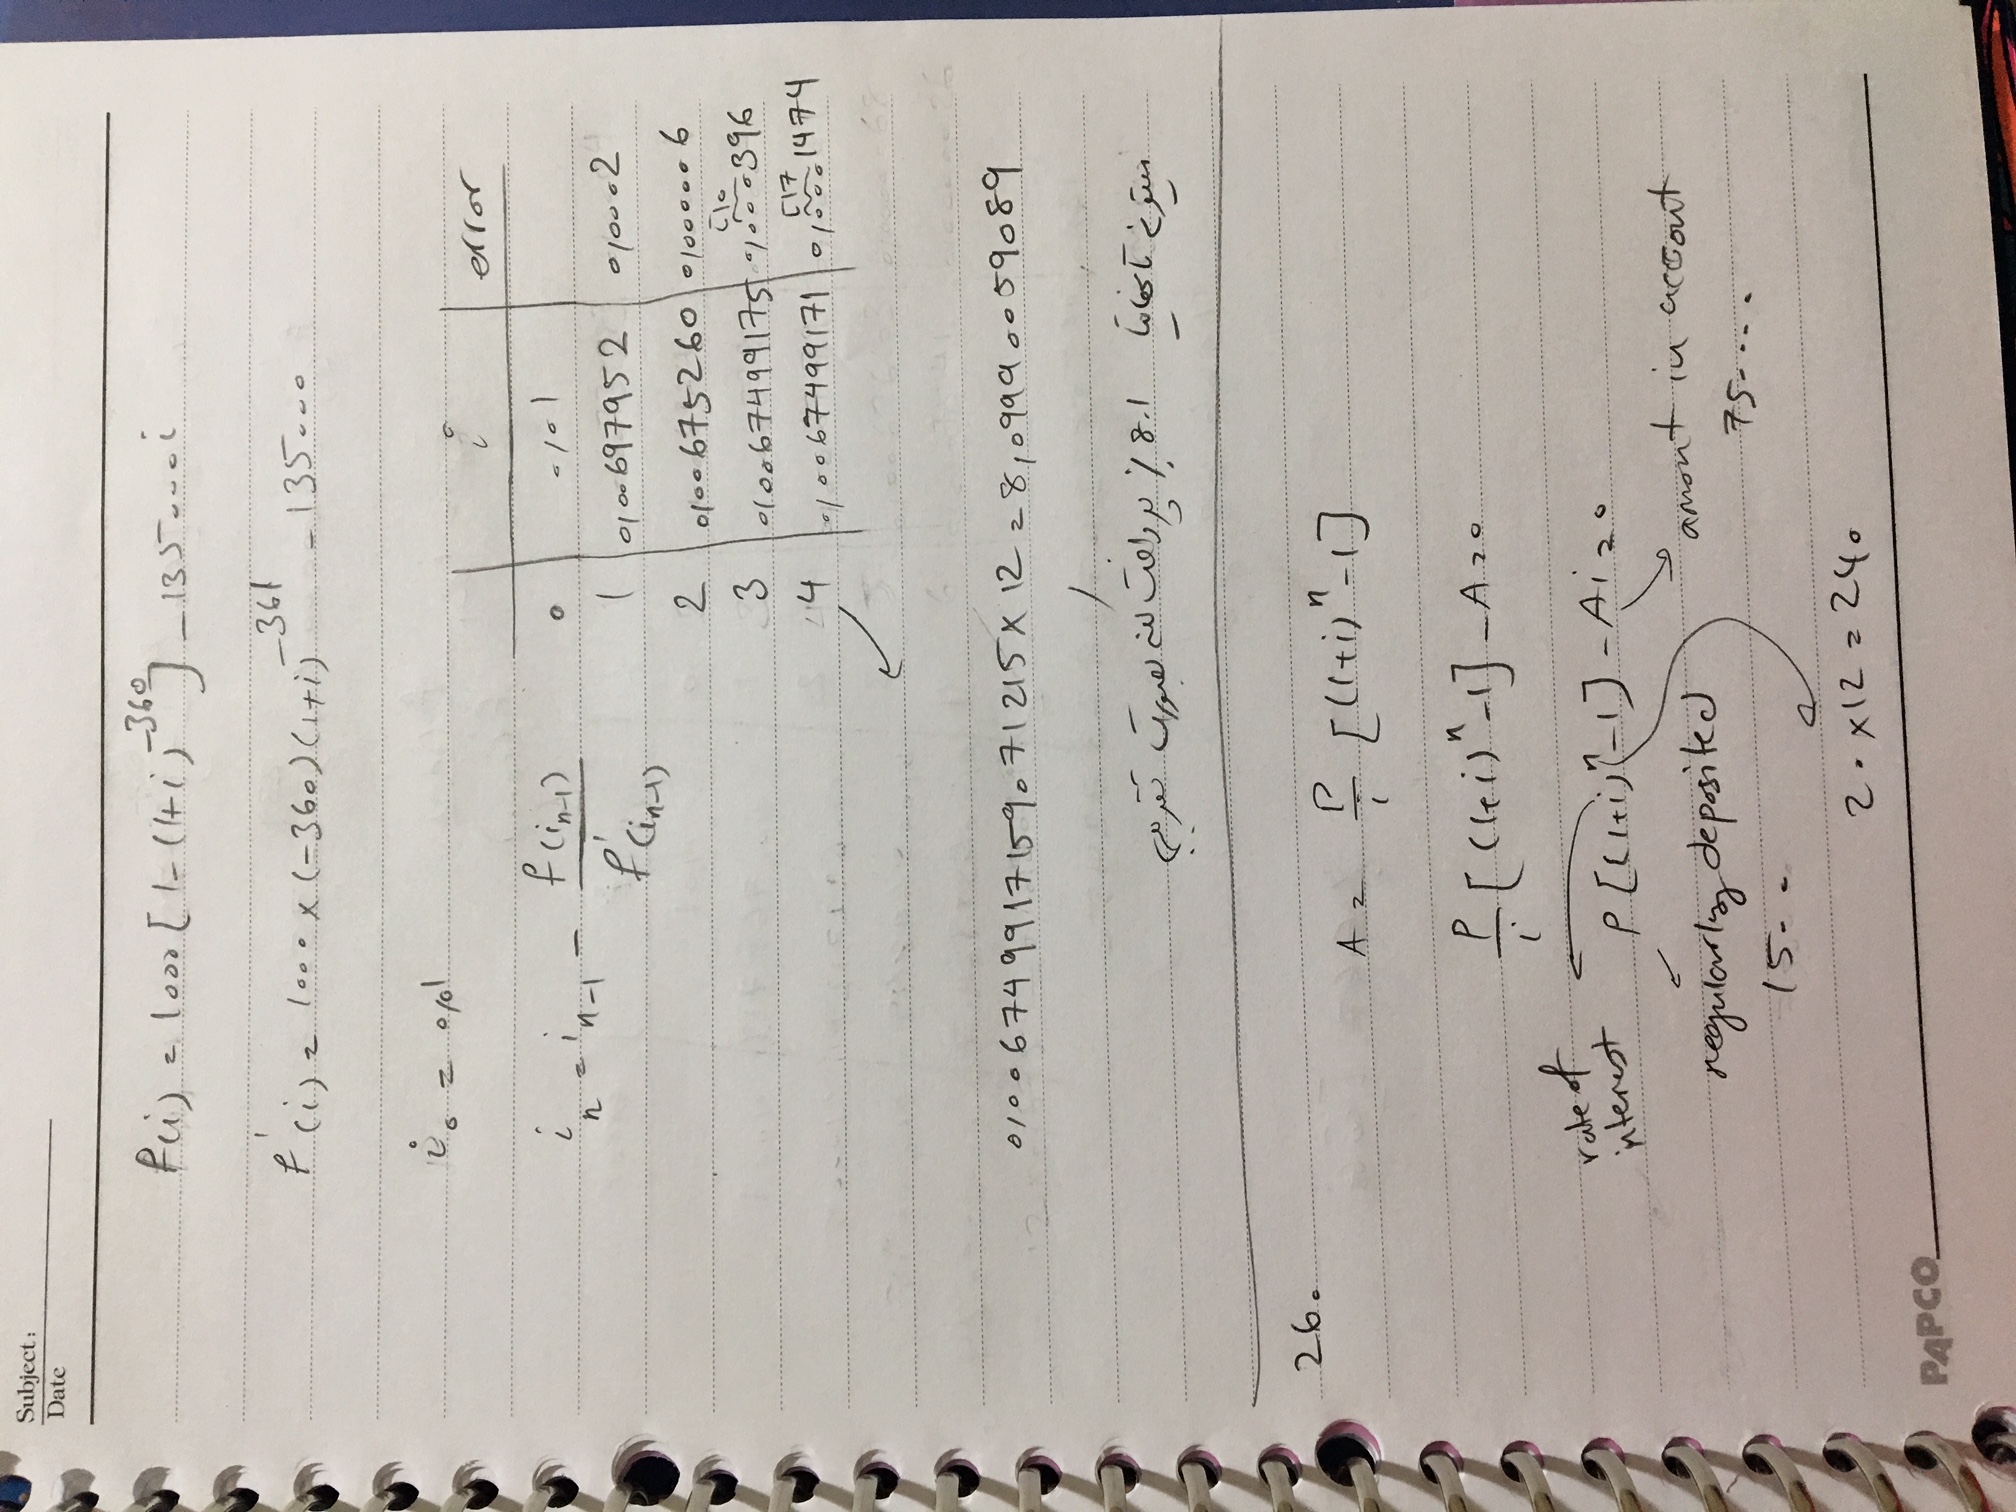 Subject:
Date
f(i) = 1000 [1-(1+i)^-360] - 135000i
f'(i) = 1000 × (-360)(1+i)^-361 - 135000
i₀ = 0,01
i error
i_n = i_n-1 - f(i_n-1) / f'(i_n-1)
0 0,01
1 0,00697952 0,0002
2 0,00675260 0,000006
3 0,0067499175 0,000396
4 0,0067499171 0,0001474
0,006749917159071215 × 12 = 8,09990059089
میتونه تا نهایتا 8.1 % پرداخت کنه بصورت تقریبی
26.
A = P/i [(1+i)^n -1]
P/i [(1+i)^n -1] - A = 0
rate of
interest
P[(1+i)^n -1] - Ai = 0
amont in accont
regularly deposited
750000
1500
20 × 12 = 240
PAPCO